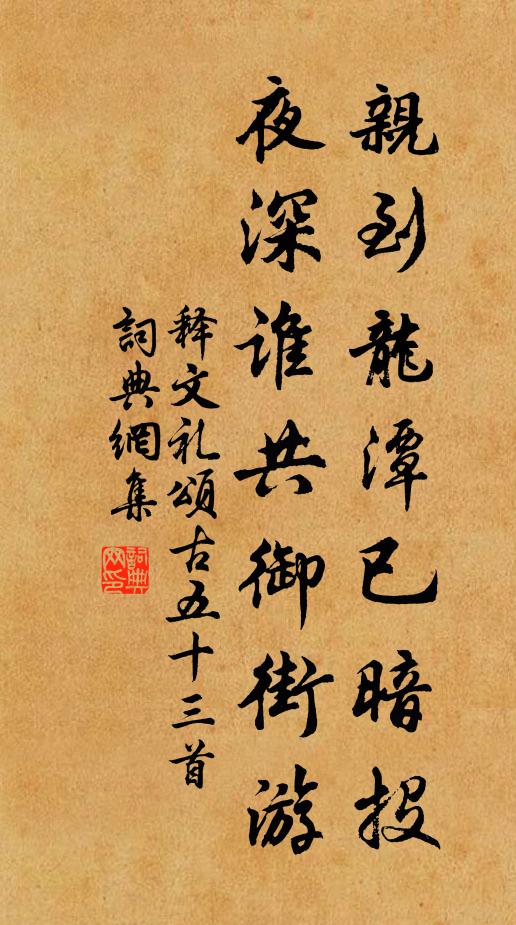 親到龍潭已暗投
夜深誰共御街游
释文礼頌古五十三首
詞典網集
詞典网印